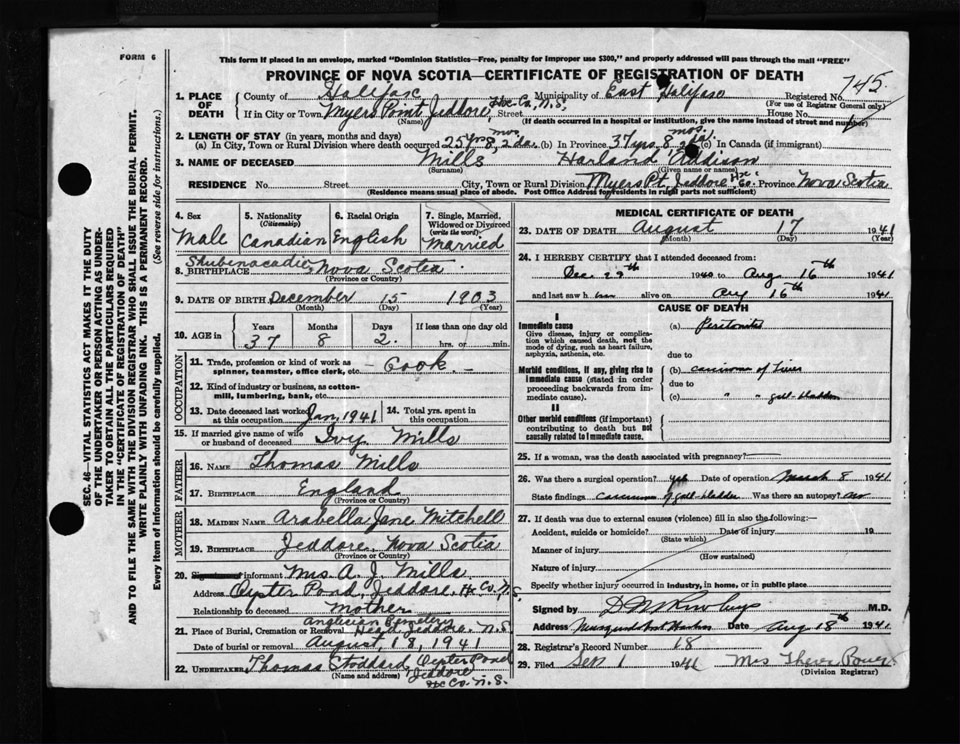 FORM 6
This form if placed in an envelope, marked "Dominion Statistics—Free, penalty for improper use $300," and properly addressed will pass through the mail "FREE"
PROVINCE OF NOVA SCOTIA—CERTIFICATE OF REGISTRATION OF DEATH
745
1. PLACE OF DEATH
County of Halifax Municipality of East Halifax Registered No.
(For use of Registrar General only)
If in City or Town Myers Point Jeddore Hx. Co. N.S. Street House No.
(Name) (If death occurred in a hospital or institution, give the name instead of street and number)
2. LENGTH OF STAY (in years, months and days)
(a) In City, Town or Rural Division where death occurred 25 yrs 8 mos. 2 da. (b) In Province 37 yrs. 8 mos. 2 da. (c) In Canada (if immigrant)
3. NAME OF DECEASED Mills Harland Addison
(Surname) (Given name or names)
RESIDENCE No. Street City, Town or Rural Division Myers Pt. Jeddore Hx Co. Province Nova Scotia
(Residence means usual place of abode. Post Office Address for residents in rural parts not sufficient)
4. Sex Male
5. Nationality (Citizenship) Canadian
6. Racial Origin English
7. Single, Married, Widowed or Divorced (write the word) Married
8. BIRTHPLACE Shubenacadie Nova Scotia
(Province or Country)
9. DATE OF BIRTH December 15 1903
(Month) (Day) (Year)
10. AGE in Years 37 Months 8 Days 2 If less than one day old hrs. or min.
OCCUPATION
11. Trade, profession or kind of work as spinner, teamster, office clerk, etc. — Cook. —
12. Kind of industry or business, as cotton-mill, lumbering, bank, etc.
13. Date deceased last worked at this occupation Jan. 1941
14. Total yrs. spent in this occupation
15. If married give name of wife or husband of deceased Ivy Mills
FATHER
16. NAME Thomas Mills
17. BIRTHPLACE England
(Province or Country)
MOTHER
18. MAIDEN NAME Arabella Jane Mitchell
19. BIRTHPLACE Jeddore, Nova Scotia
(Province or Country)
20. informant Mrs. A. J. Mills
Address Oyster Pond, Jeddore, Hx Co. N.S.
Relationship to deceased Mother
21. Place of Burial, Cremation or Removal Anglican Cemetery Head Jeddore. N.S.
Date of burial or removal August, 18, 1941
22. UNDERTAKER Thomas Stoddard Oyster Pond
(Name and address) Jeddore
Hx Co. N.S.
MEDICAL CERTIFICATE OF DEATH
23. DATE OF DEATH August 17 1941
(Month) (Day) (Year)
24. I HEREBY CERTIFY that I attended deceased from:
Dec. 29th 1940 to Aug 16th 1941
and last saw him alive on Aug 16th 1941
CAUSE OF DEATH
I
Immediate cause
Give disease, injury or complication which caused death, not the mode of dying, such as heart failure, asphyxia, asthenia, etc.
(a) Peritonitis
due to
Morbid conditions, if any, giving rise to immediate cause (stated in order proceeding backwards from immediate cause).
(b) carcinoma of Liver
due to
(c) " " gall-bladder
II
Other morbid conditions (if important) contributing to death but not causally related to immediate cause.
25. If a woman, was the death associated with pregnancy?
26. Was there a surgical operation? yes Date of operation March 8 1941
State findings carcinoma of gall-bladder Was there an autopsy? no
27. If death was due to external causes (violence) fill in also the following:—
Accident, suicide or homicide? Date of injury 19
(State which)
Manner of injury
(How sustained)
Nature of injury
Specify whether injury occurred in industry, in home, or in public place
Signed by M.D.
Address Musquodoboit Harbor Date Aug 18th 1941
28. Registrar's Record Number 18
29. Filed Sep 1 1941 Mrs
(Division Registrar)
SEC. 46—VITAL STATISTICS ACT MAKES IT THE DUTY
OF THE UNDERTAKER OR PERSON ACTING AS UNDER-
TAKER TO OBTAIN ALL THE PARTICULARS REQUIRED
IN THE "CERTIFICATE OF REGISTRATION OF DEATH"
AND TO FILE THE SAME WITH THE DIVISION REGISTRAR WHO SHALL ISSUE THE BURIAL PERMIT.
WRITE PLAINLY WITH UNFADING INK. THIS IS A PERMANENT RECORD.
Every item of information should be carefully supplied. (See reverse side for instructions.)